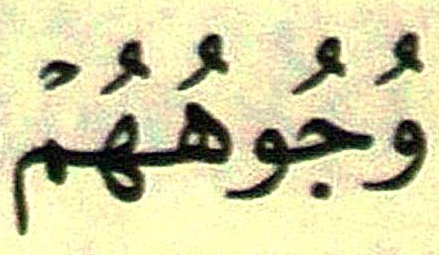 وُجُوهُهُمْ